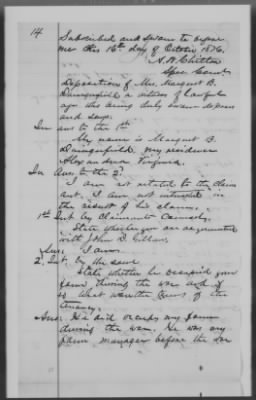 14
Subscribed and sworn to before
me this 16th day of October 1876.
Spec Comr
Deposition of Mrs. Margaret B.
Daingerfield a witness of lawful
age who being duly sworn deposes
and says.
In ans to the 1st
My name is Margaret B
Daingerfield, my residence
Alexandria Virginia.
In Ans to the 2d
I am not related to the claim
ant. I am not interested in
the result of his claims.
1st Int by Claimants Counsel,
State whether you are acquainted
with John D.
Ans: I am.
2d Int. by the same
State whether he occupied your
farm, during the war and if
so what were the terms of the
tenancy.
Ans: He did occupy my farm
during the war. He was my
farm manager before the war